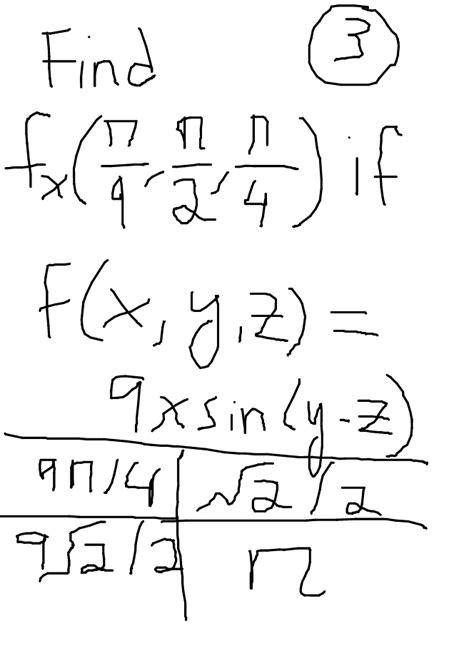 Find 3
fx(π/9, π/2, π/4) if
F(x, y, z) =
9x sin(y-z)
9π/4 √2/2
9√2/2 π